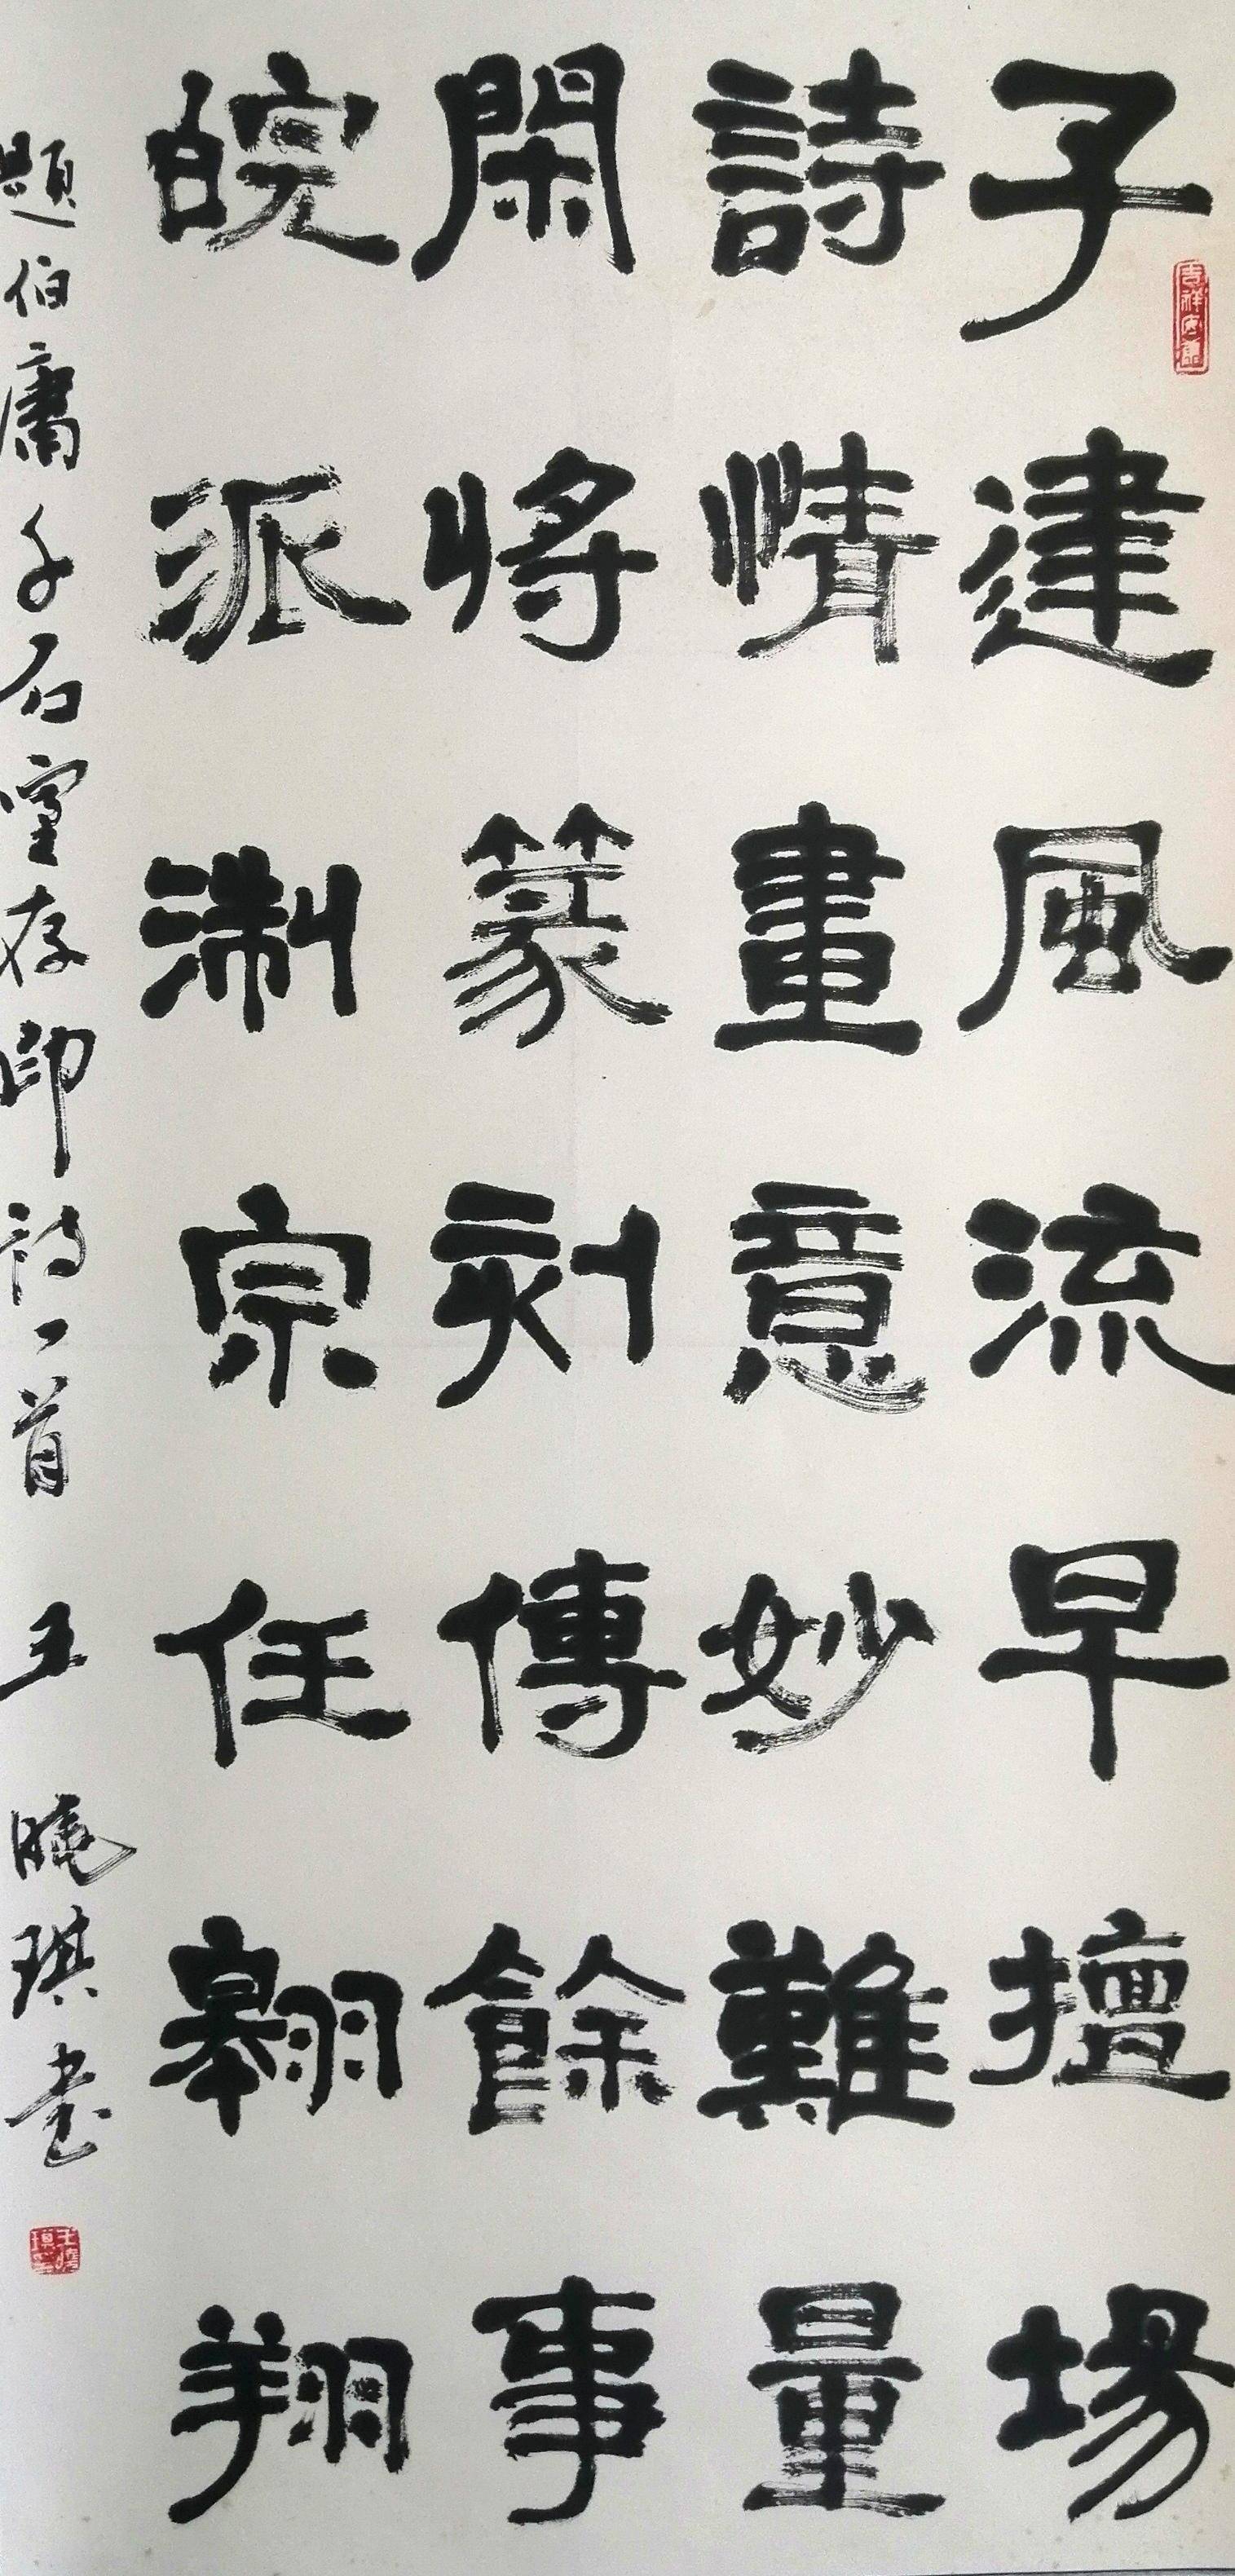 子建風流早擅場
詩情畫意妙難量
閑將篆刻傳餘事
皖派浙宗任翱翔
題伯庸千石室存印詩一首 王曉琪書
吉祥安康